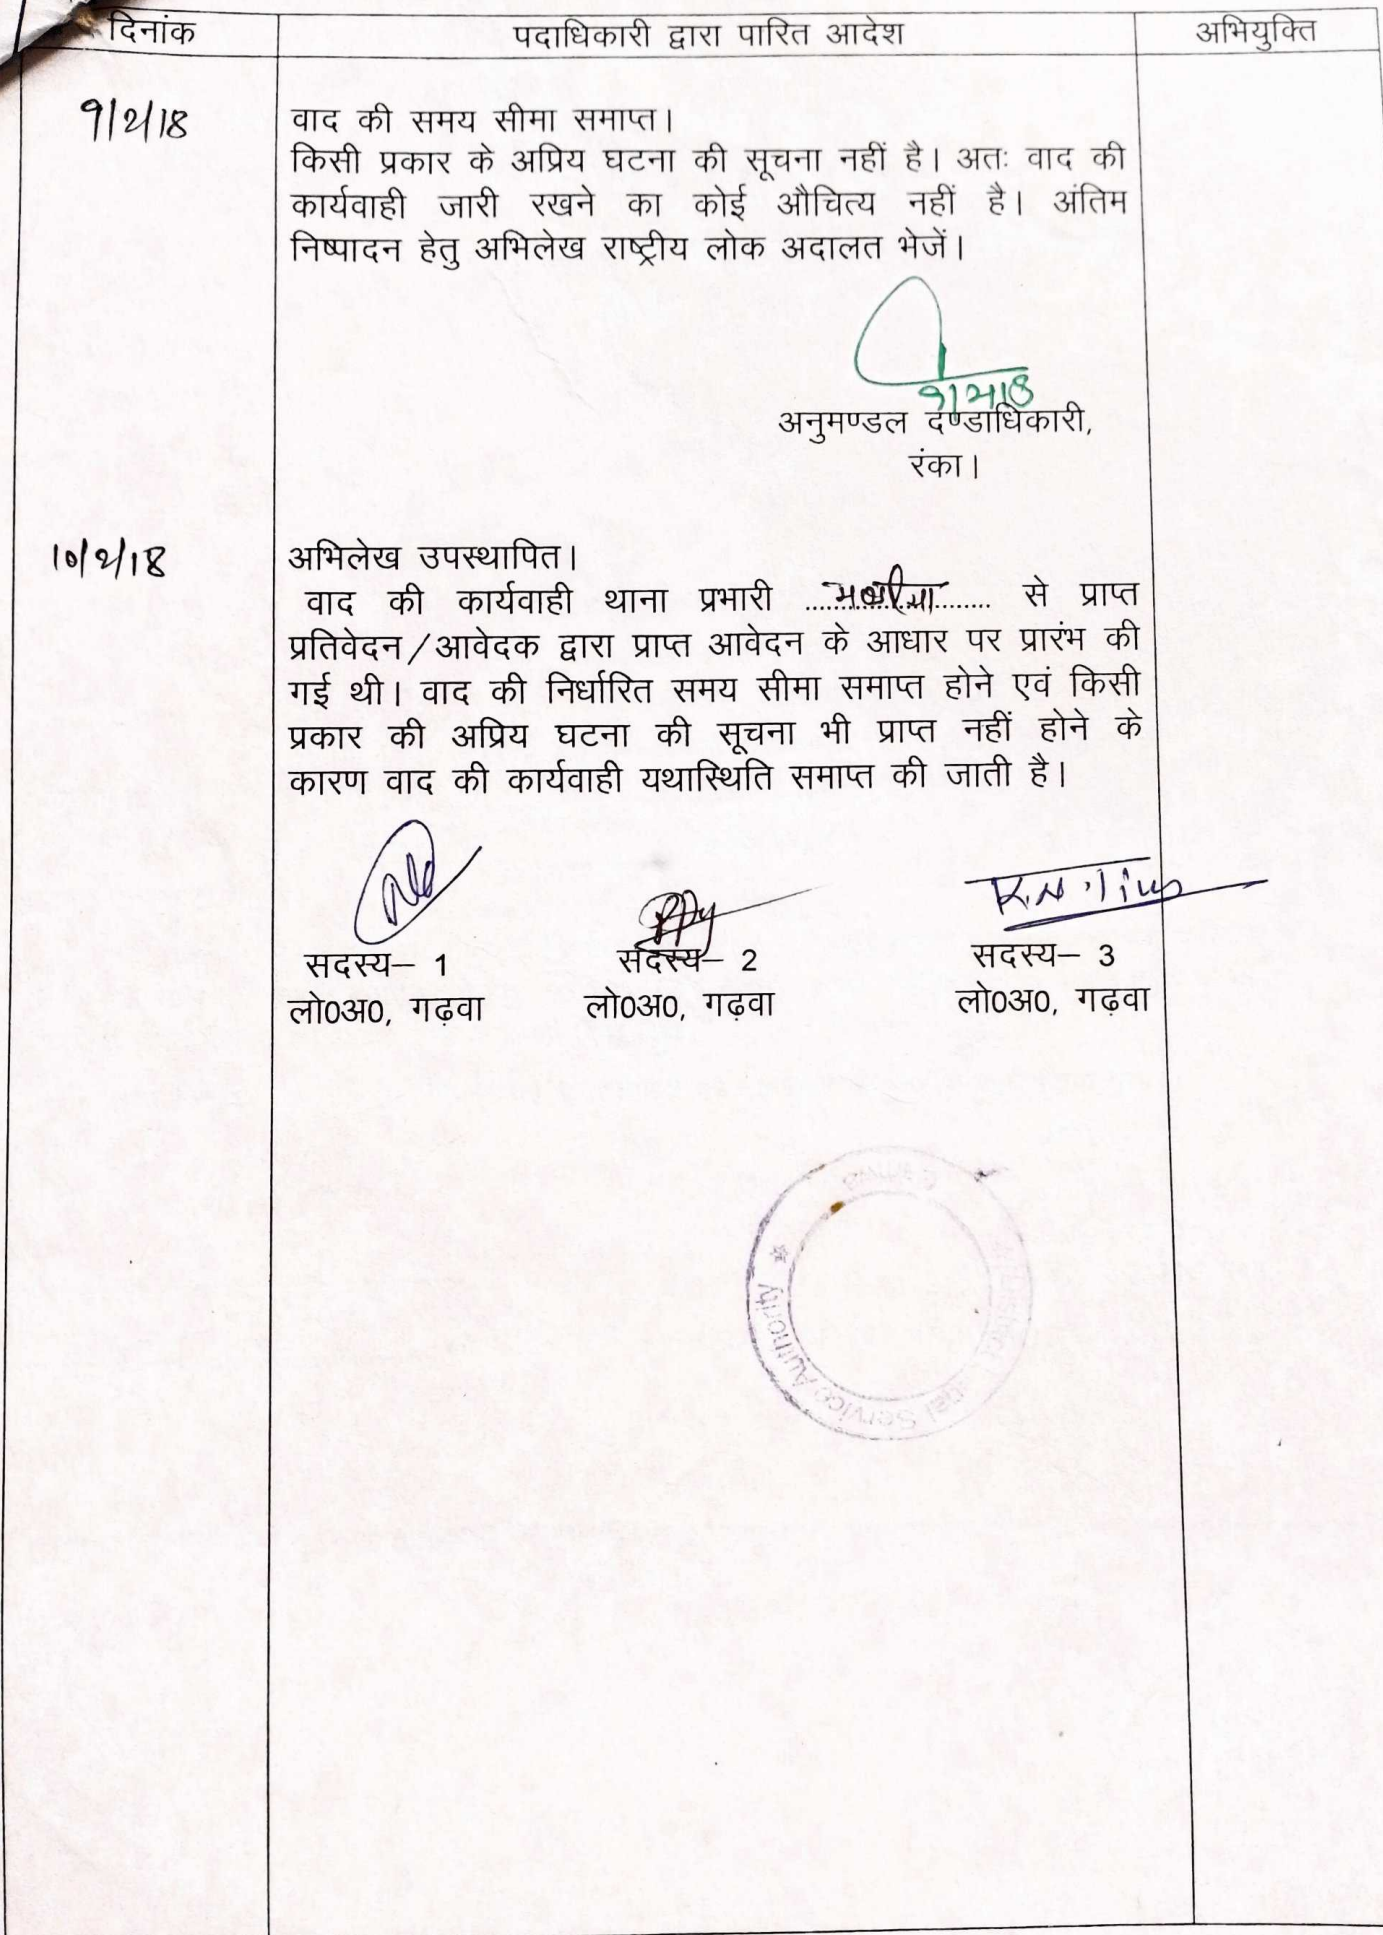 दिनांक पदाधिकारी द्वारा पारित आदेश अभियुक्ति
9/2/18 वाद की समय सीमा समाप्त।
किसी प्रकार के अप्रिय घटना की सूचना नहीं है। अतः वाद की
कार्यवाही जारी रखने का कोई औचित्य नहीं है। अंतिम
निष्पादन हेतु अभिलेख राष्ट्रीय लोक अदालत भेजें।
9/2/18
अनुमण्डल दण्डाधिकारी,
रंका।
10/2/18 अभिलेख उपस्थापित।
वाद की कार्यवाही थाना प्रभारी .................... से प्राप्त
प्रतिवेदन/आवेदक द्वारा प्राप्त आवेदन के आधार पर प्रारंभ की
गई थी। वाद की निर्धारित समय सीमा समाप्त होने एवं किसी
प्रकार की अप्रिय घटना की सूचना भी प्राप्त नहीं होने के
कारण वाद की कार्यवाही यथास्थिति समाप्त की जाती है।
सदस्य– 1 सदस्य– 2 सदस्य– 3
लो0अ0, गढ़वा लो0अ0, गढ़वा लो0अ0, गढ़वा
District Legal Service Authority